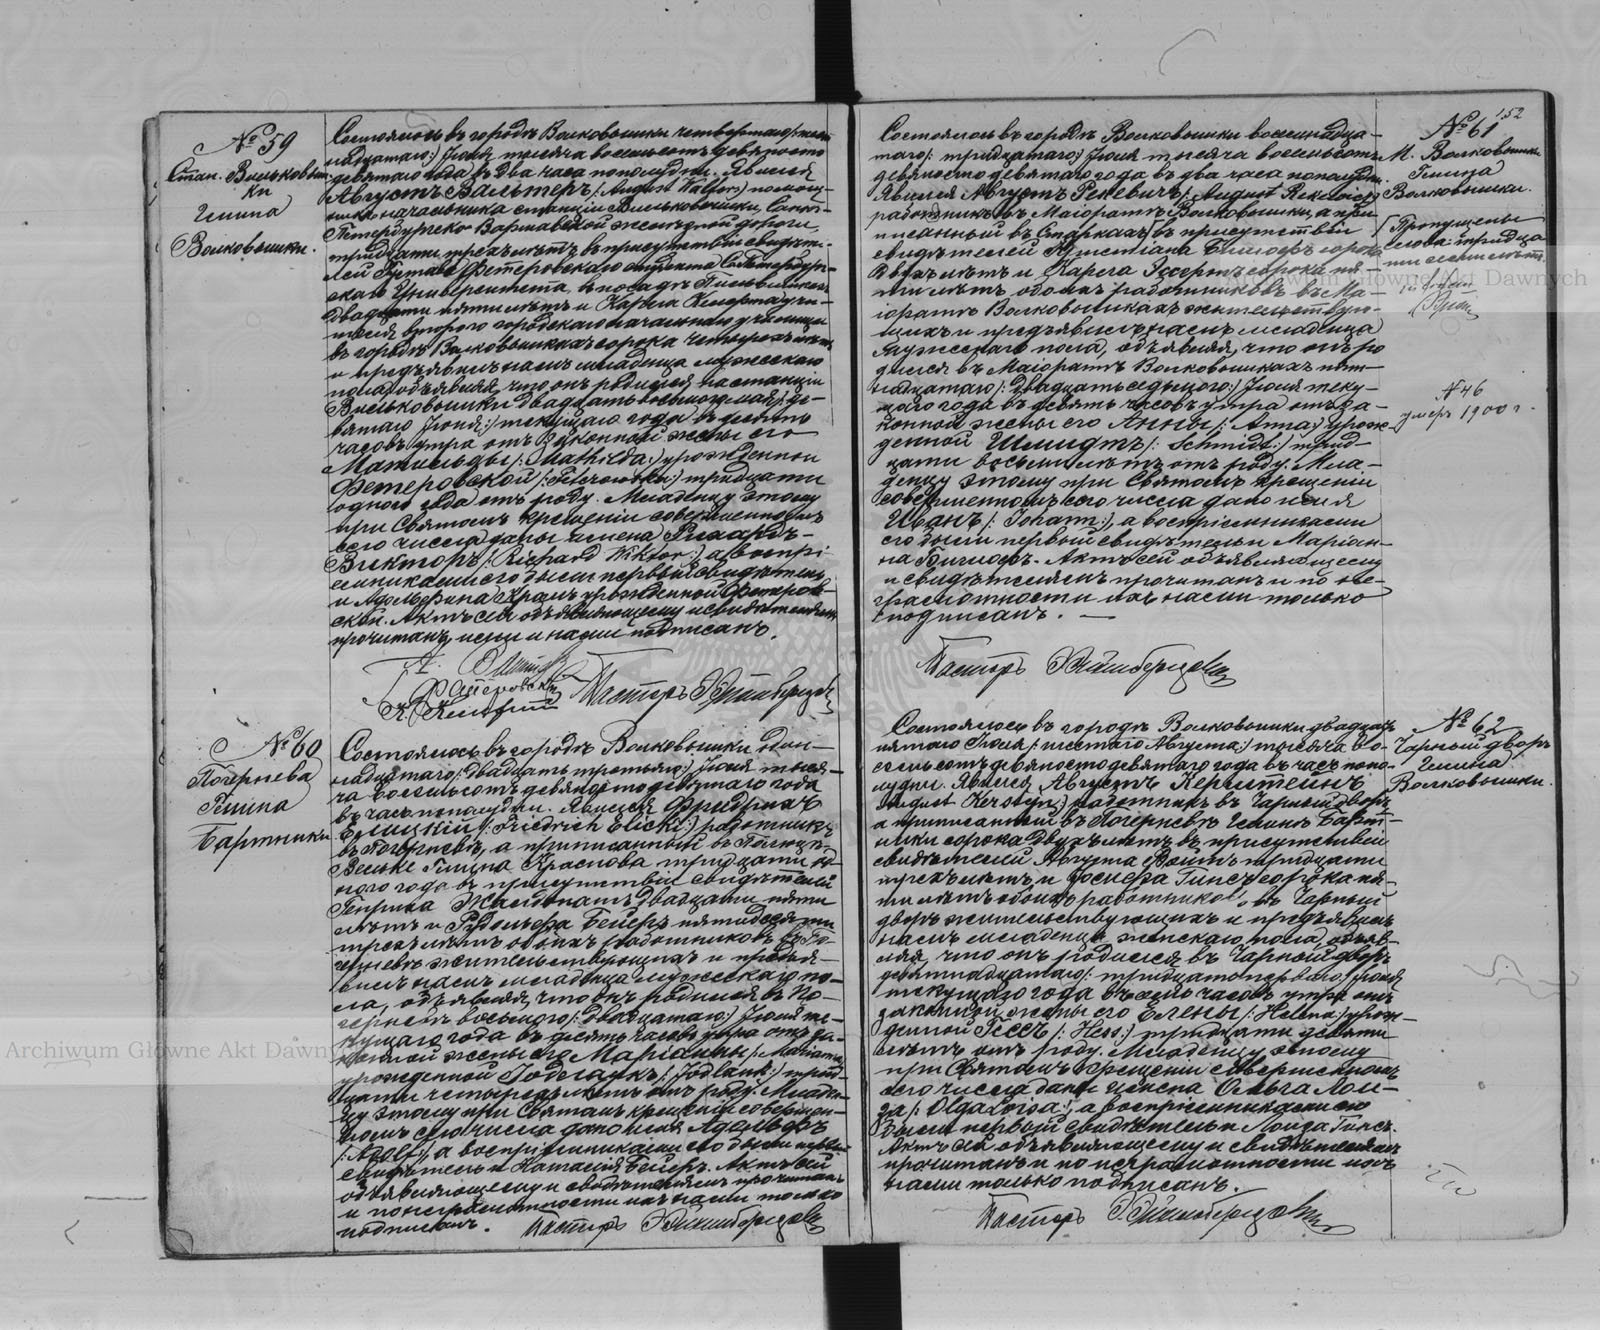 № 59
Стан. Вильковыш-
ки
Гмина
Волковышки.
Состоялось въ городѣ Волковышки четвертаго /: шест-
надцатаго :/ Іюня тысяча восемьсотъ девяносто
девятаго года въ два часа пополудни. Явился
Августъ Вальтеръ /: August Walters :/ помощ-
никъ начальника станціи Вильковышки, Санкт-
Петербургско Варшавской желѣзной дороги,
тридцати трехъ лѣтъ, въ присутствіи свидѣте-
лей Густава Фетеровскаго студента С. Петербург-
скаго Университета, въ посадѣ
двадцати пяти лѣтъ и Карла учи-
теля второго городскаго начальнаго училища
въ городѣ Волковышкахъ сорока четырехъ лѣтъ
и предъявилъ намъ младенца мужескаго
пола, объявляя, что онъ родился на станціи
Вильковышки двадцать восьмого мая /: де-
вятаго Іюня :/ текущаго года въ десять
часовъ утра отъ законной жены его
Матильды /: Mathilda :/ урожденной
Фетеровской /: Feterowska :/ тридцати
одного года отъ роду. Младенцу этому
при Святомъ крещеніи совершенномъ
сего числа даны имена Рихардъ-
Викторъ /: Richard Wiktor :/ а воспрі-
емниками его были первый свидѣтель
и Адольфина урожденной Фетеров-
ской. Актъ сей объявляющему и свидѣтелямъ
прочитанъ, ими и нами подписанъ.
Фетеровскій
Пасторъ
№ 60
Погернева
Гмина
Бартники
Состоялось въ городѣ Волковышки один-
надцатаго /: двадцать третьяго :/ Іюня тыся-
ча восемьсотъ девяносто девятаго года
въ часъ пополудни. Явился Фридрихъ
Елицкій /: Friedrich Elicki :/ работникъ
въ Погерневѣ, а приписанный въ
Гмина тридцати од-
ного года въ присутствіи свидѣтелей
Генриха двадцати пяти
лѣтъ и Рудольфа Бейеръ пятидесяти
трехъ лѣтъ обоихъ работниковъ въ По-
герневѣ жительствующихъ и предъя-
вилъ намъ младенца мужескаго по-
ла, объявляя, что онъ родился въ По-
герневѣ восьмого /: двадцатаго :/ Іюня те-
кущаго года въ десять часовъ утра отъ за-
конной жены его Маріанны /: Marianna
урожденной Іодлаукъ /: Jodlauk :/ трид-
цати четырехъ лѣтъ отъ роду. Младен-
цу этому при Святомъ крещеніи совершен-
номъ сего числа дано имя Адольфъ
/: Adolf :/, а воспріемниками его были первый
свидѣтель и Наталія Бейеръ. Актъ сей
объявляющему и свидѣтелямъ прочитанъ
и по неграмотности ихъ нами только
подписанъ.
Пасторъ
152
№ 61
М. Волковышки
Гмина
Волковышки.
Пропущены
слова: тридца
ти семи лѣтъ
№ 46
умеръ 1900 г.
Состоялось въ городѣ Волковышки восемнадца-
таго /: тридцатаго :/ Іюня тысяча восемьсотъ
девяносто девятаго года въ два часа пополудни.
Явился Августъ Рекевичъ /: August Rekewicz :/
работникъ въ Маіоратѣ Волковышки, а при-
писанный въ въ присутствіи
свидѣтелей Христіана сорока
двухъ лѣтъ и Карла сорока пя-
ти лѣтъ, обоихъ работниковъ въ Ма-
іоратѣ Волковышкахъ жительствую-
щихъ и предъявилъ намъ младенца
мужескаго пола, объявляя, что онъ ро
дился въ Маіоратѣ Волковышкахъ пят-
надцатаго /: двадцать седьмого :/ Іюня теку-
щаго года въ девять часовъ утра отъ за-
конной жены его Анны /: Anna :/ урож-
денной Шмидтъ /: Schmidt :/ трид-
цати восьми лѣтъ отъ роду. Мла-
денцу этому при Святомъ крещеніи
совершенномъ сего числа дано имя
Иванъ /: Johann :/, а воспріемниками
его были первый свидѣтель и Маріан-
на Актъ сей объявляющему
и свидѣтелямъ прочитанъ и по не-
грамотности ихъ нами только
подписанъ.
Пасторъ
№ 62
Чарный дворъ
Гмина
Волковышки.
Состоялось въ городѣ Волковышки двадцать
пятаго Іюля /: шестаго Августа :/ тысяча во-
семьсотъ девяносто девятаго года въ часъ попо-
лудни. Явился Августъ Керштейнъ
August Kerstein :/ работникъ въ Чарный дворѣ
а приписанный въ Погерневѣ Гмины Барт-
ники сорока двухъ лѣтъ въ присутствіи
свидѣтелей Августа тридцати
трехъ лѣтъ и Гинсъ сорока пя-
ти лѣтъ обоихъ работниковъ въ Чарный
дворѣ жительствующихъ и предъявилъ
намъ младенца женскаго пола, объяв-
ляя, что онъ родился въ Чарный дворѣ
девятнадцатаго /: тридцать перваго :/ Іюля
текущаго года въ семь часовъ утра отъ
законной жены его Елены /: Helena :/ урож-
денной Гессъ /: Hess :/ тридцати девяти
лѣтъ отъ роду. Младенцу этому
при Святомъ крещеніи совершенномъ
сего числа даны имена Ольга Лои-
за /: Olga Loisa :/, а воспріемниками его
были первый свидѣтель и Лоиза Гинсъ.
Актъ сей объявляющему и свидѣтелямъ
прочитанъ и по неграмотности ихъ
нами только подписанъ.
Пасторъ
Archiwum Główne Akt Dawnych
Archiwum Główne Akt Dawnych